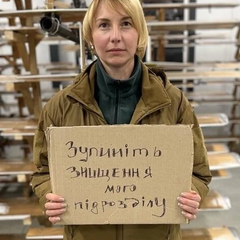 Зупиніть
знищення
мого
підрозділу